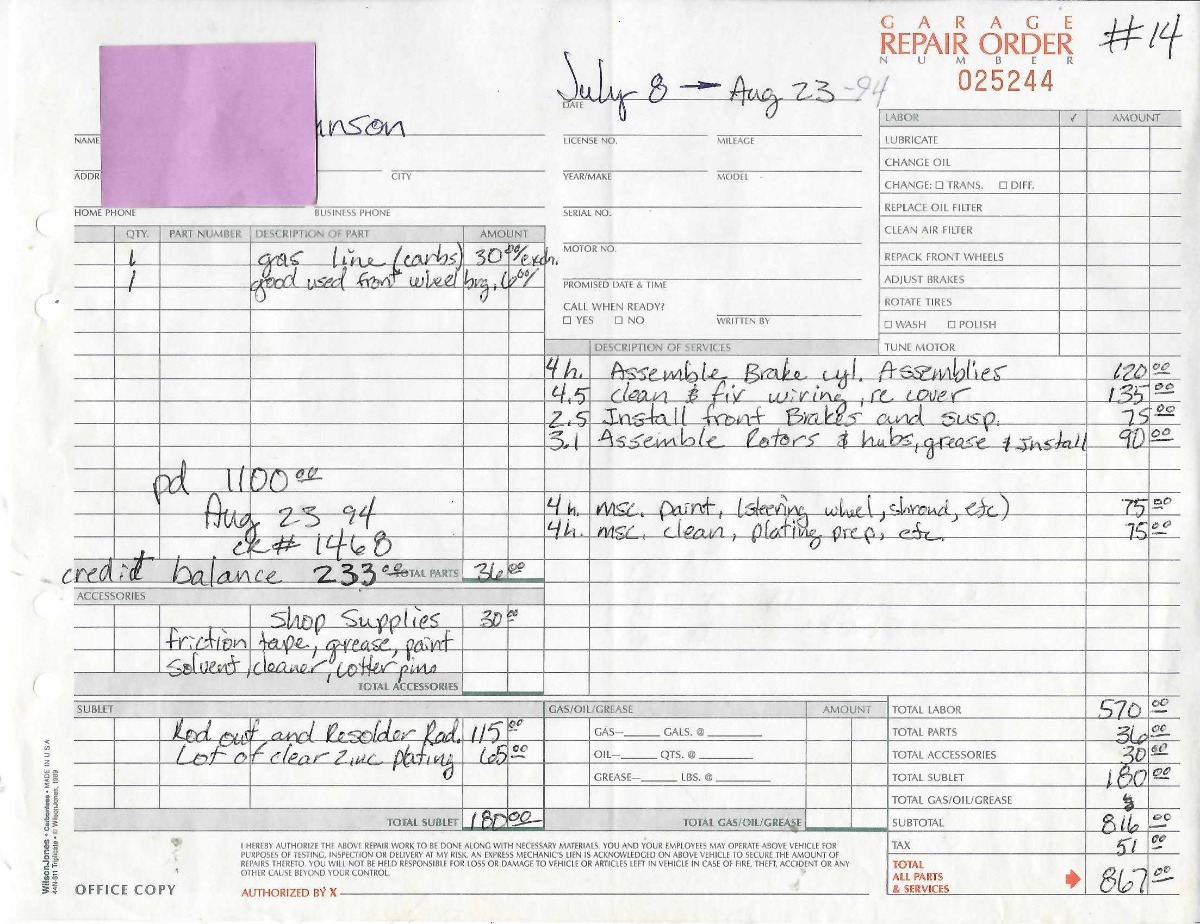 GARAGE
REPAIR ORDER
NUMBER
025244
#14
July 8 → Aug 23 -94
DATE
nson
NAME
ADDR
CITY
HOME PHONE
BUSINESS PHONE
LICENSE NO.
MILEAGE
YEAR/MAKE
MODEL
SERIAL NO.
MOTOR NO.
PROMISED DATE & TIME
CALL WHEN READY?
☐ YES ☐ NO
WRITTEN BY
LABOR ✓ AMOUNT
LUBRICATE
CHANGE OIL
CHANGE: ☐ TRANS. ☐ DIFF.
REPLACE OIL FILTER
CLEAN AIR FILTER
REPACK FRONT WHEELS
ADJUST BRAKES
ROTATE TIRES
☐ WASH ☐ POLISH
TUNE MOTOR
QTY. PART NUMBER DESCRIPTION OF PART AMOUNT
1 gas line (carbs) 30 00/exch.
1 good used front wheel brg, 6 00/
pd 1100 00
Aug 23 94
ck# 1468
credit balance 233 00
TOTAL PARTS 36 00
DESCRIPTION OF SERVICES
4h. Assemble Brake cyl. Assemblies 120 00
4.5 clean & fix wiring, re cover 135 00
2.5 Install front Brakes and susp. 75 00
3.1 Assemble Rotors & hubs, grease & install 90 00
4h. msc. paint, (steering wheel, shroud, etc) 75 00
4h. msc. clean, plating prep, etc. 75 00
ACCESSORIES
Shop Supplies 30 00
friction tape, grease, paint
solvent, cleaner, cotter pins
TOTAL ACCESSORIES
SUBLET
Rod out and Resolder Rad. 115 00
Lot of clear Zinc plating 65 00
TOTAL SUBLET 180 00
GAS/OIL/GREASE AMOUNT
GAS— GALS. @
OIL— QTS. @
GREASE— LBS. @
TOTAL GAS/OIL/GREASE
TOTAL LABOR 570 00
TOTAL PARTS 36 00
TOTAL ACCESSORIES 30 00
TOTAL SUBLET 180 00
TOTAL GAS/OIL/GREASE
SUBTOTAL 816 00
TAX 51 00
TOTAL
ALL PARTS
& SERVICES 867 00
I HEREBY AUTHORIZE THE ABOVE REPAIR WORK TO BE DONE ALONG WITH NECESSARY MATERIALS. YOU AND YOUR EMPLOYEES MAY OPERATE ABOVE VEHICLE FOR
PURPOSES OF TESTING, INSPECTION OR DELIVERY AT MY RISK. AN EXPRESS MECHANIC'S LIEN IS ACKNOWLEDGED ON ABOVE VEHICLE TO SECURE THE AMOUNT OF
REPAIRS THERETO. YOU WILL NOT BE HELD RESPONSIBLE FOR LOSS OR DAMAGE TO VEHICLE OR ARTICLES LEFT IN VEHICLE IN CASE OF FIRE, THEFT, ACCIDENT OR ANY
OTHER CAUSE BEYOND YOUR CONTROL.
OFFICE COPY
AUTHORIZED BY X
Wilson-Jones • Carbonless • MADE IN U.S.A.
44N-811 Triplicate • © Wilson-Jones, 1989